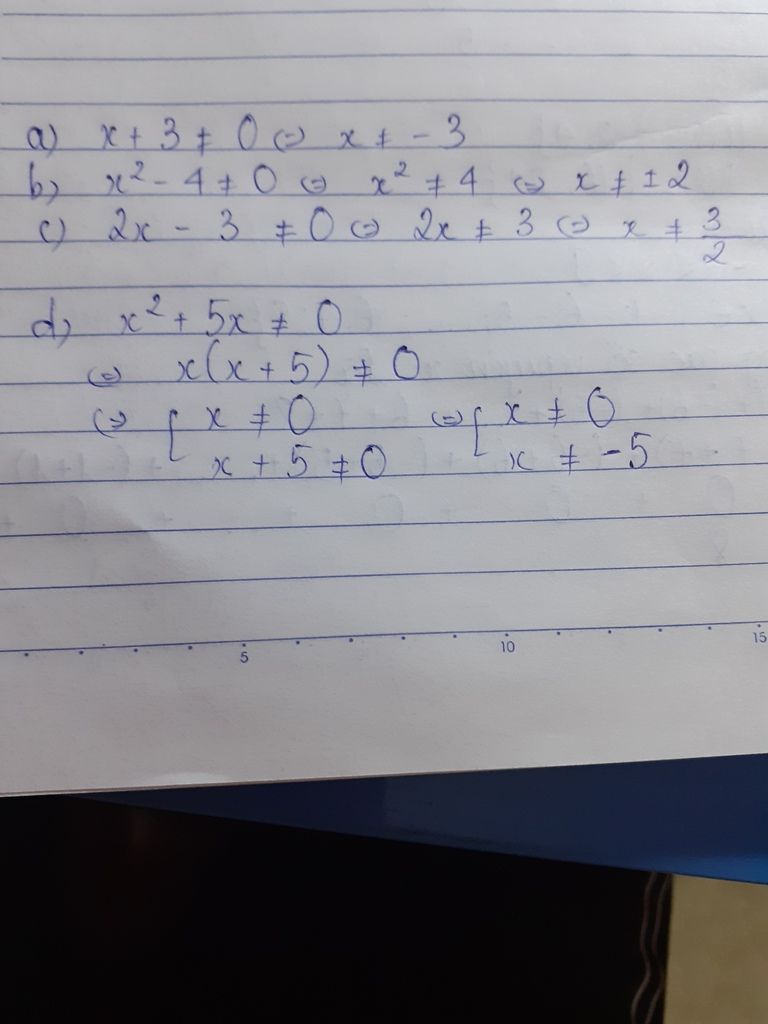 a) x + 3 ≠ 0 ⇔ x ≠ - 3
b) x² - 4 ≠ 0 ⇔ x² ≠ 4 ⇔ x ≠ ±2
c) 2x - 3 ≠ 0 ⇔ 2x ≠ 3 ⇔ x ≠ 3/2
d) x² + 5x ≠ 0
⇔ x(x + 5) ≠ 0
⇔ [ x ≠ 0 ⇔ [ x ≠ 0
x + 5 ≠ 0 x ≠ -5
5 10 15